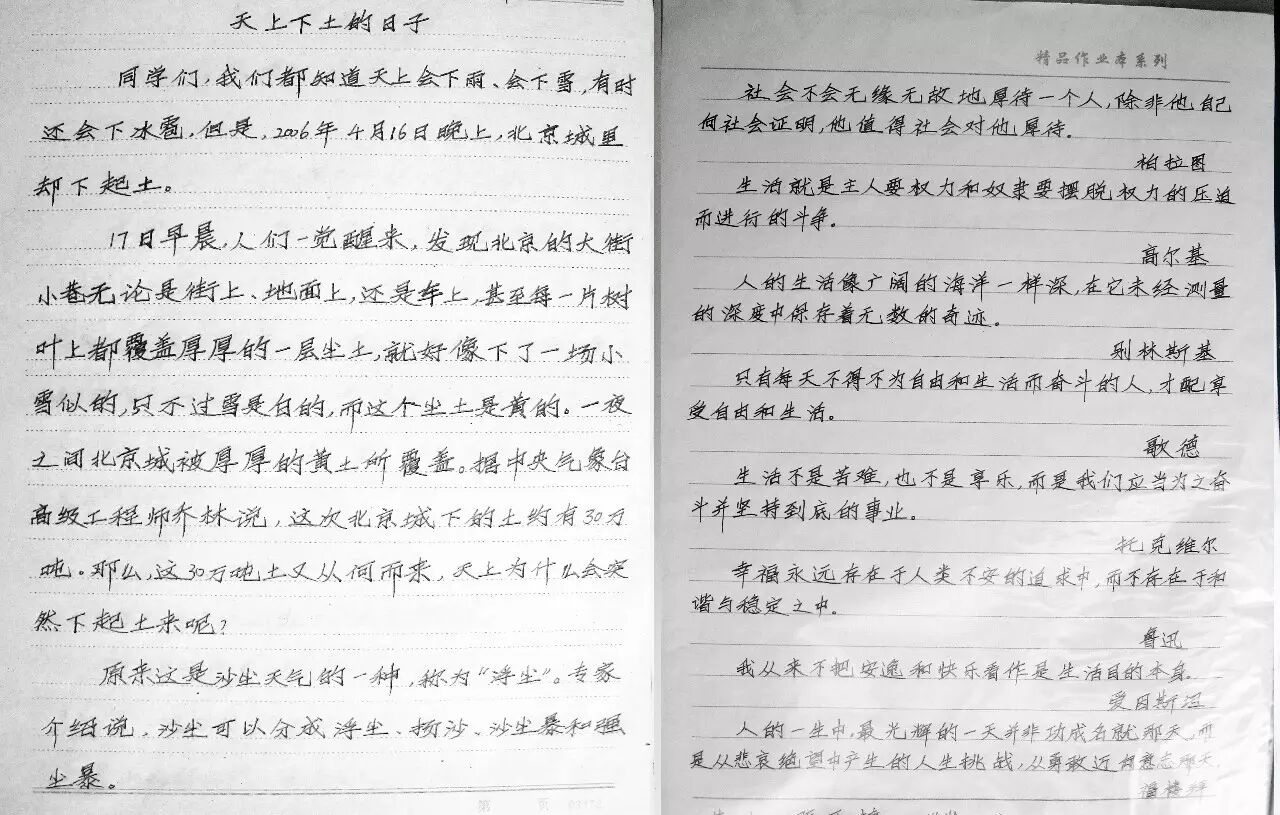 天上下土的日子
同学们,我们都知道天上会下雨、会下雪,有时
还会下冰雹,但是,2006年4月16日晚上,北京城里
却下起土。
17日早晨,人们一觉醒来,发现北京的大街
小巷无论是街上、地面上,还是车上,甚至每一片树
叶上都覆盖厚厚的一层尘土,就好像下了一场小
雪似的,只不过雪是白的,而这个尘土是黄的。一夜
之间北京城被厚厚的黄土所覆盖。据中央气象台
高级工程师乔林说,这次北京城下的土约有30万
吨。那么,这30万吨土又从何而来,天上为什么会突
然下起土来呢?
原来这是沙尘天气的一种,称为“浮尘”。专家
介绍说,沙尘可以分成浮尘、扬沙、沙尘暴和强
尘暴。
第 页
精品作业本系列
社会不会无缘无故地厚待一个人,除非他自己
向社会证明,他值得社会对他厚待。
柏拉图
生活就是主人要权力和奴隶要摆脱权力的压迫
而进行的斗争。
高尔基
人的生活像广阔的海洋一样深,在它未经测量
的深度中保存着无数的奇迹。
别林斯基
只有每天不得不为自由和生活而奋斗的人,才配享
受自由和生活。
歌德
生活不是苦难,也不是享乐,而是我们应当为之奋
斗并坚持到底的事业。
托克维尔
幸福永远存在于人类不安的追求中,而不存在于和
谐与稳定之中。
鲁迅
我从来不把安逸和快乐看作是生活目的本身。
爱因斯坦
人的一生中,最光辉的一天并非功成名就那天,而
是从悲哀绝望中产生的人生挑战,从勇敢迈向意志那天。
福楼拜